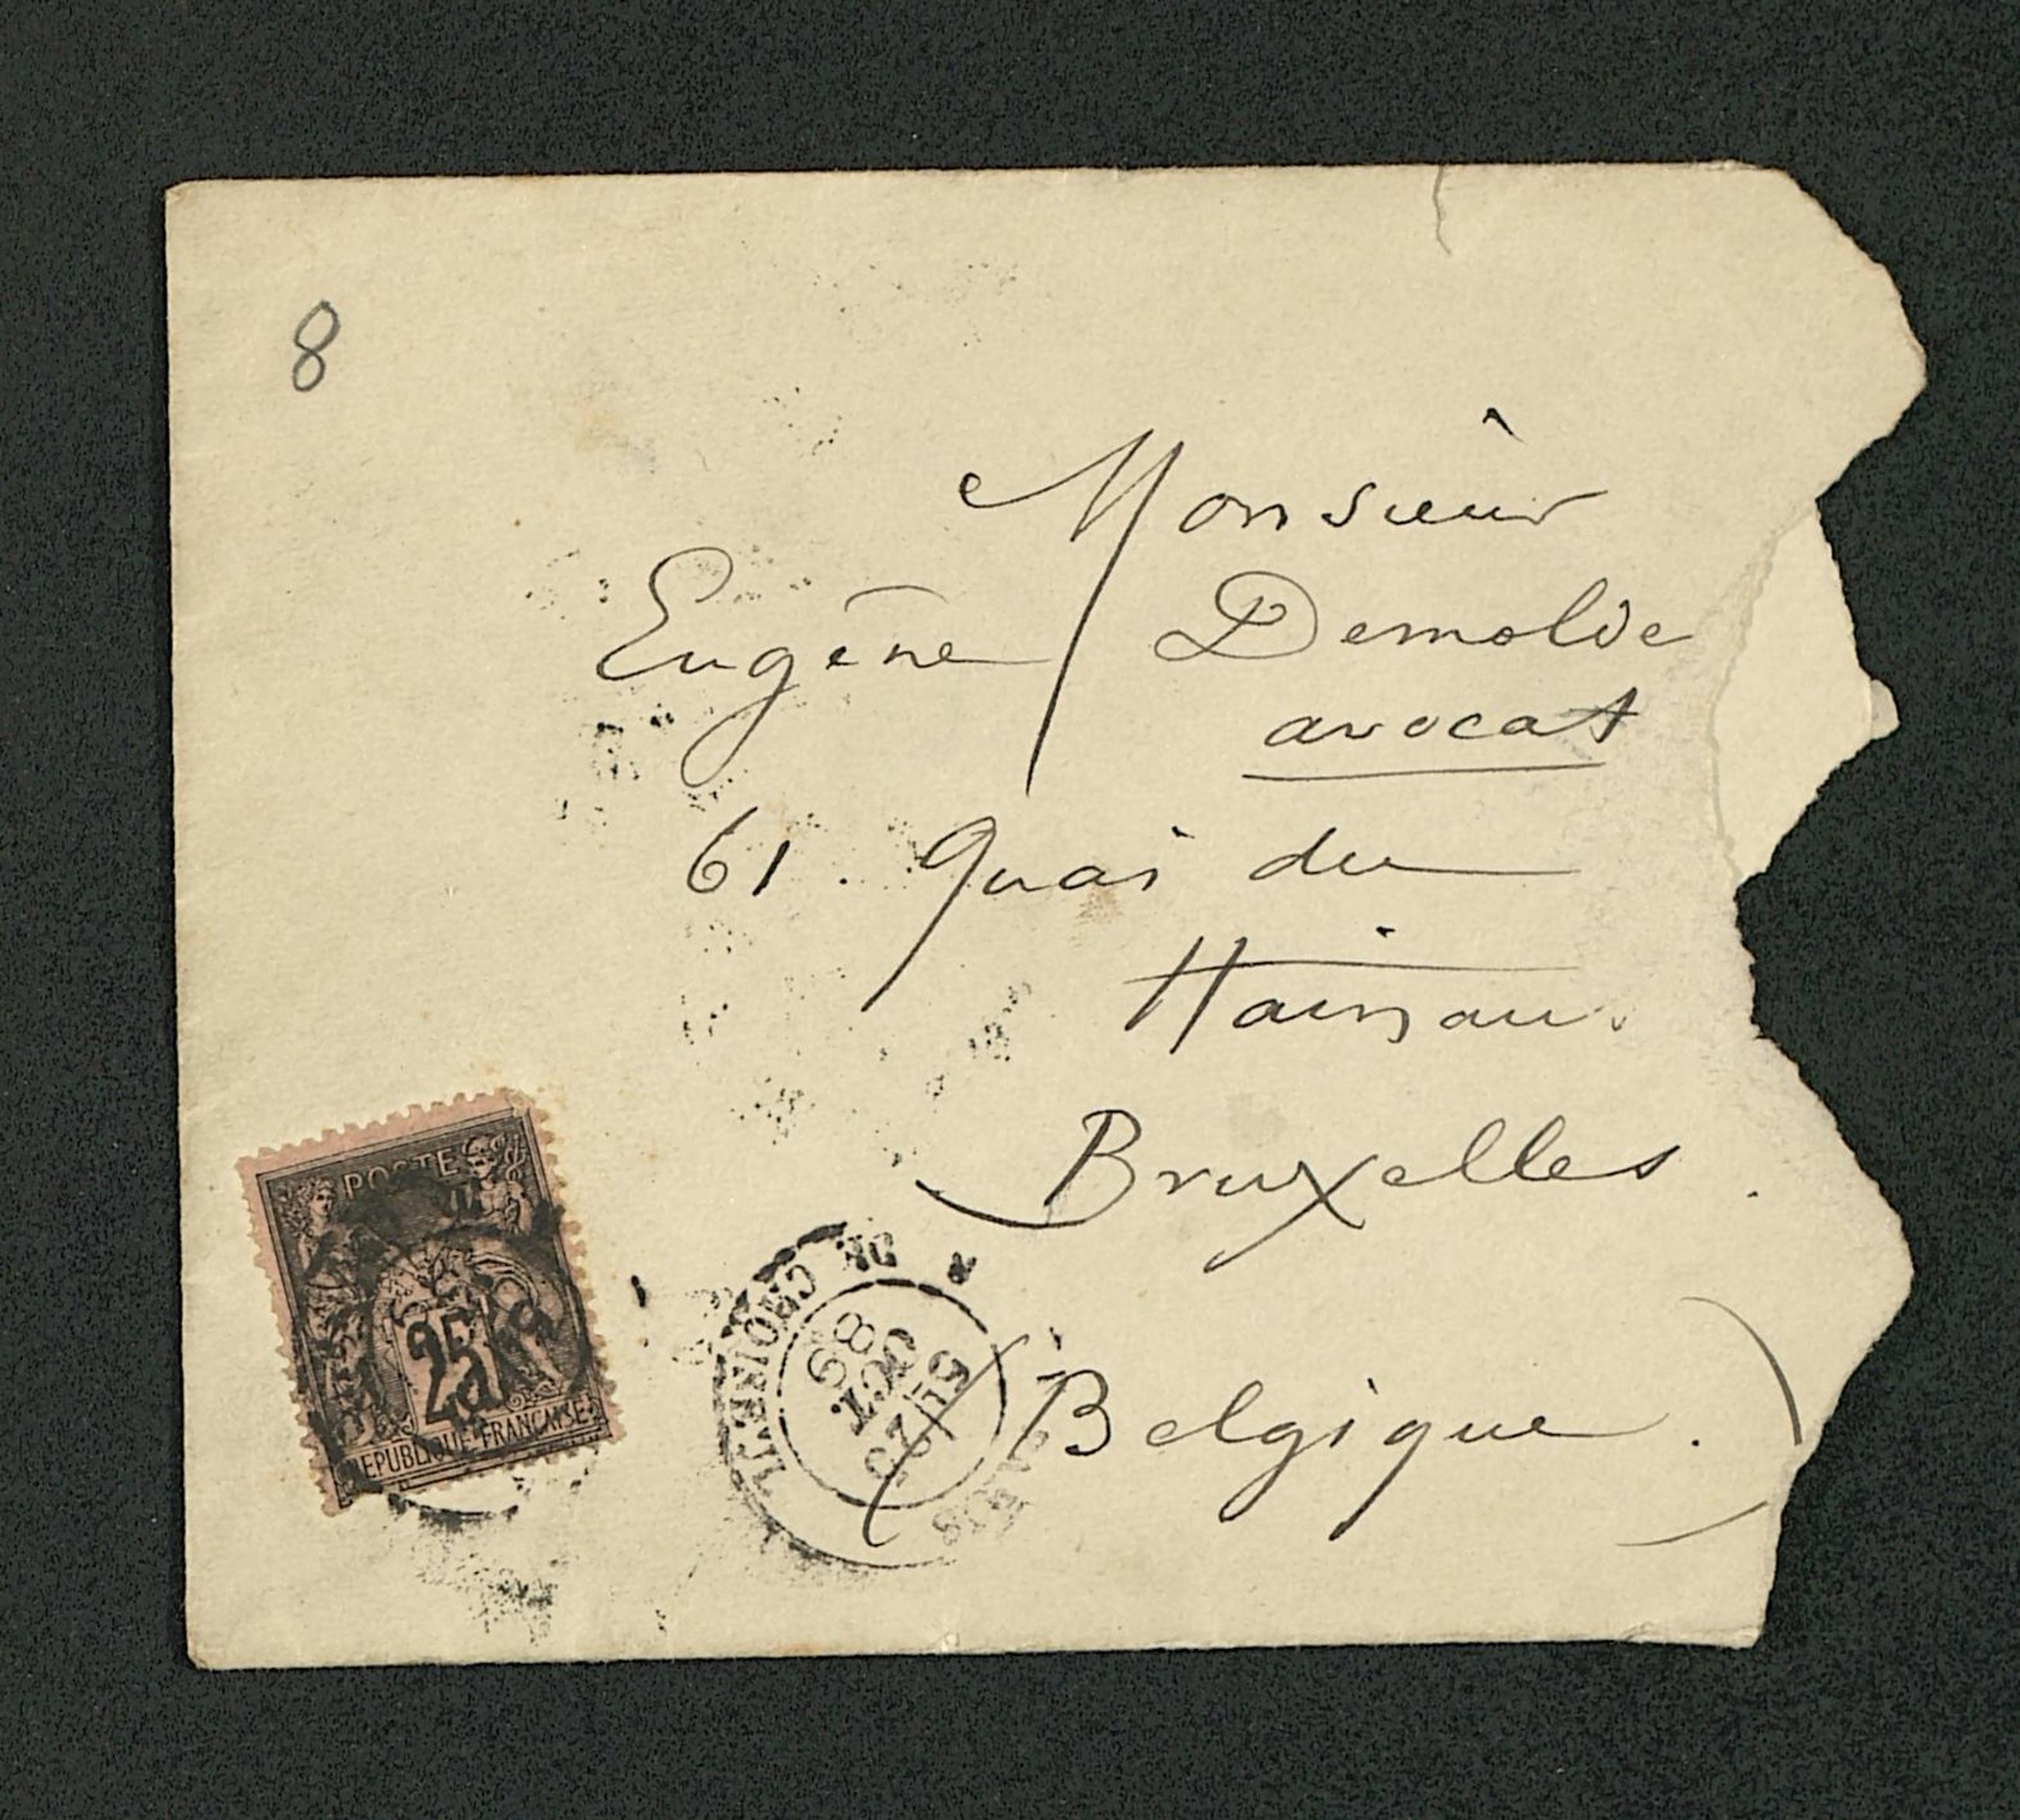 8
Monsieur
Eugène Demolde
avocat
61. Quai du
Hainau.
Bruxelles.
(Belgique.)
POSTE
25
REPUBLIQUE FRANÇAISE
OCT.
89